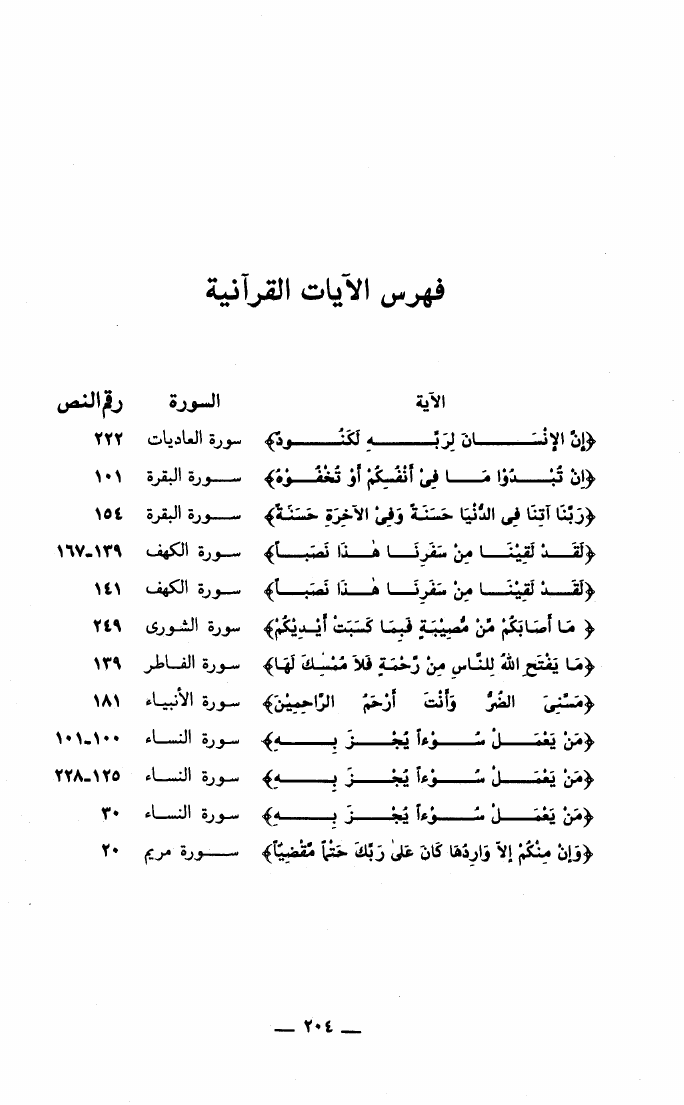 فهرس الآيات القرآنية
الآية السورة رقم النص
﴿إِنَّ الإِنْسَانَ لِرَبِّهِ لَكَنُودٌ﴾ سورة العاديات ٢٢٢
﴿إِنْ تُبْدُوْا مَا فِىْ أَنْفُسِكُمْ أَوْ تُخْفُوْهُ﴾ سورة البقرة ١٠١
﴿رَبَّنَا آتِنَا فِى الدُّنْيَا حَسَنَةً وَفِىْ الآخِرَةِ حَسَنَةً﴾ سورة البقرة ١٥٤
﴿لَقَدْ لَقِيْنَا مِنْ سَفَرِنَا هٰذَا نَصَباً﴾ سورة الكهف ١٣٩-١٦٧
﴿لَقَدْ لَقِيْنَا مِنْ سَفَرِنَا هٰذَا نَصَباً﴾ سورة الكهف ١٤١
﴿ مَا أَصَابَكُمْ مِّنْ مُّصِيْبَةٍ فَبِمَا كَسَبَتْ أَيْدِيكُمْ﴾ سورة الشورى ٢٤٩
﴿مَا يَفْتَحِ اللهُ لِلنَّاسِ مِنْ رَّحْمَةٍ فَلاَ مُمْسِكَ لَهَا﴾ سورة الفاطر ١٣٩
﴿مَسَّنِىَ الضُّرُّ وَأَنْتَ أَرْحَمُ الرَّاحِمِيْنَ﴾ سورة الأنبياء ١٨١
﴿مَنْ يَعْمَلْ سُوْءاً يُجْزَ بِهِ﴾ سورة النساء ١٠٠-١٠١
﴿مَنْ يَعْمَلْ سُوْءاً يُجْزَ بِهِ﴾ سورة النساء ١٢٥-٢٢٨
﴿مَنْ يَعْمَلْ سُوْءاً يُجْزَ بِهِ﴾ سورة النساء ٣٠
﴿وَإِنْ مِنْكُمْ إِلاَّ وَارِدُهَا كَانَ عَلىٰ رَبِّكَ حَتْماً مَّقْضِيّاً﴾ سورة مريم ٢٠
— ٢٠٤ —